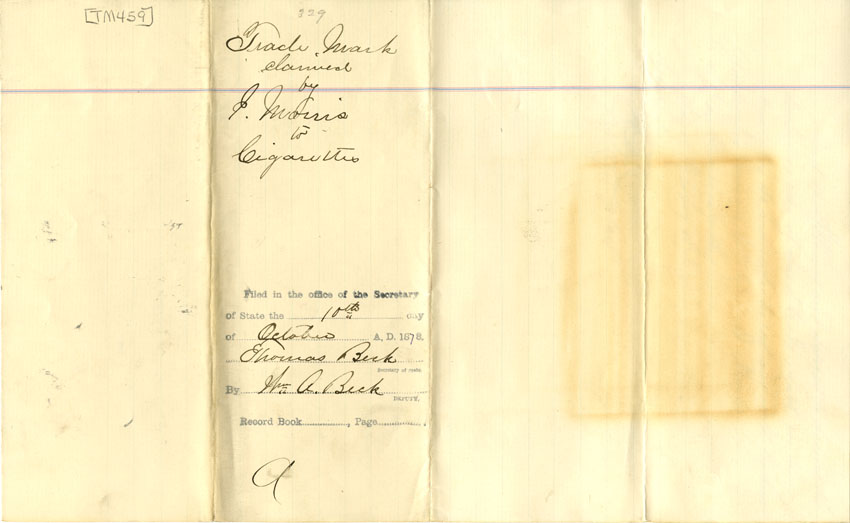 [TM459]
329
Trade Mark
claimed
by
P. Morris
to
Cigarettes
Filed in the office of the Secretary
of State the 10th day
of October A. D. 1878.
Thomas Beck
Secretary of State
By Wm A. Beck
DEPUTY.
Record Book , Page ,
A